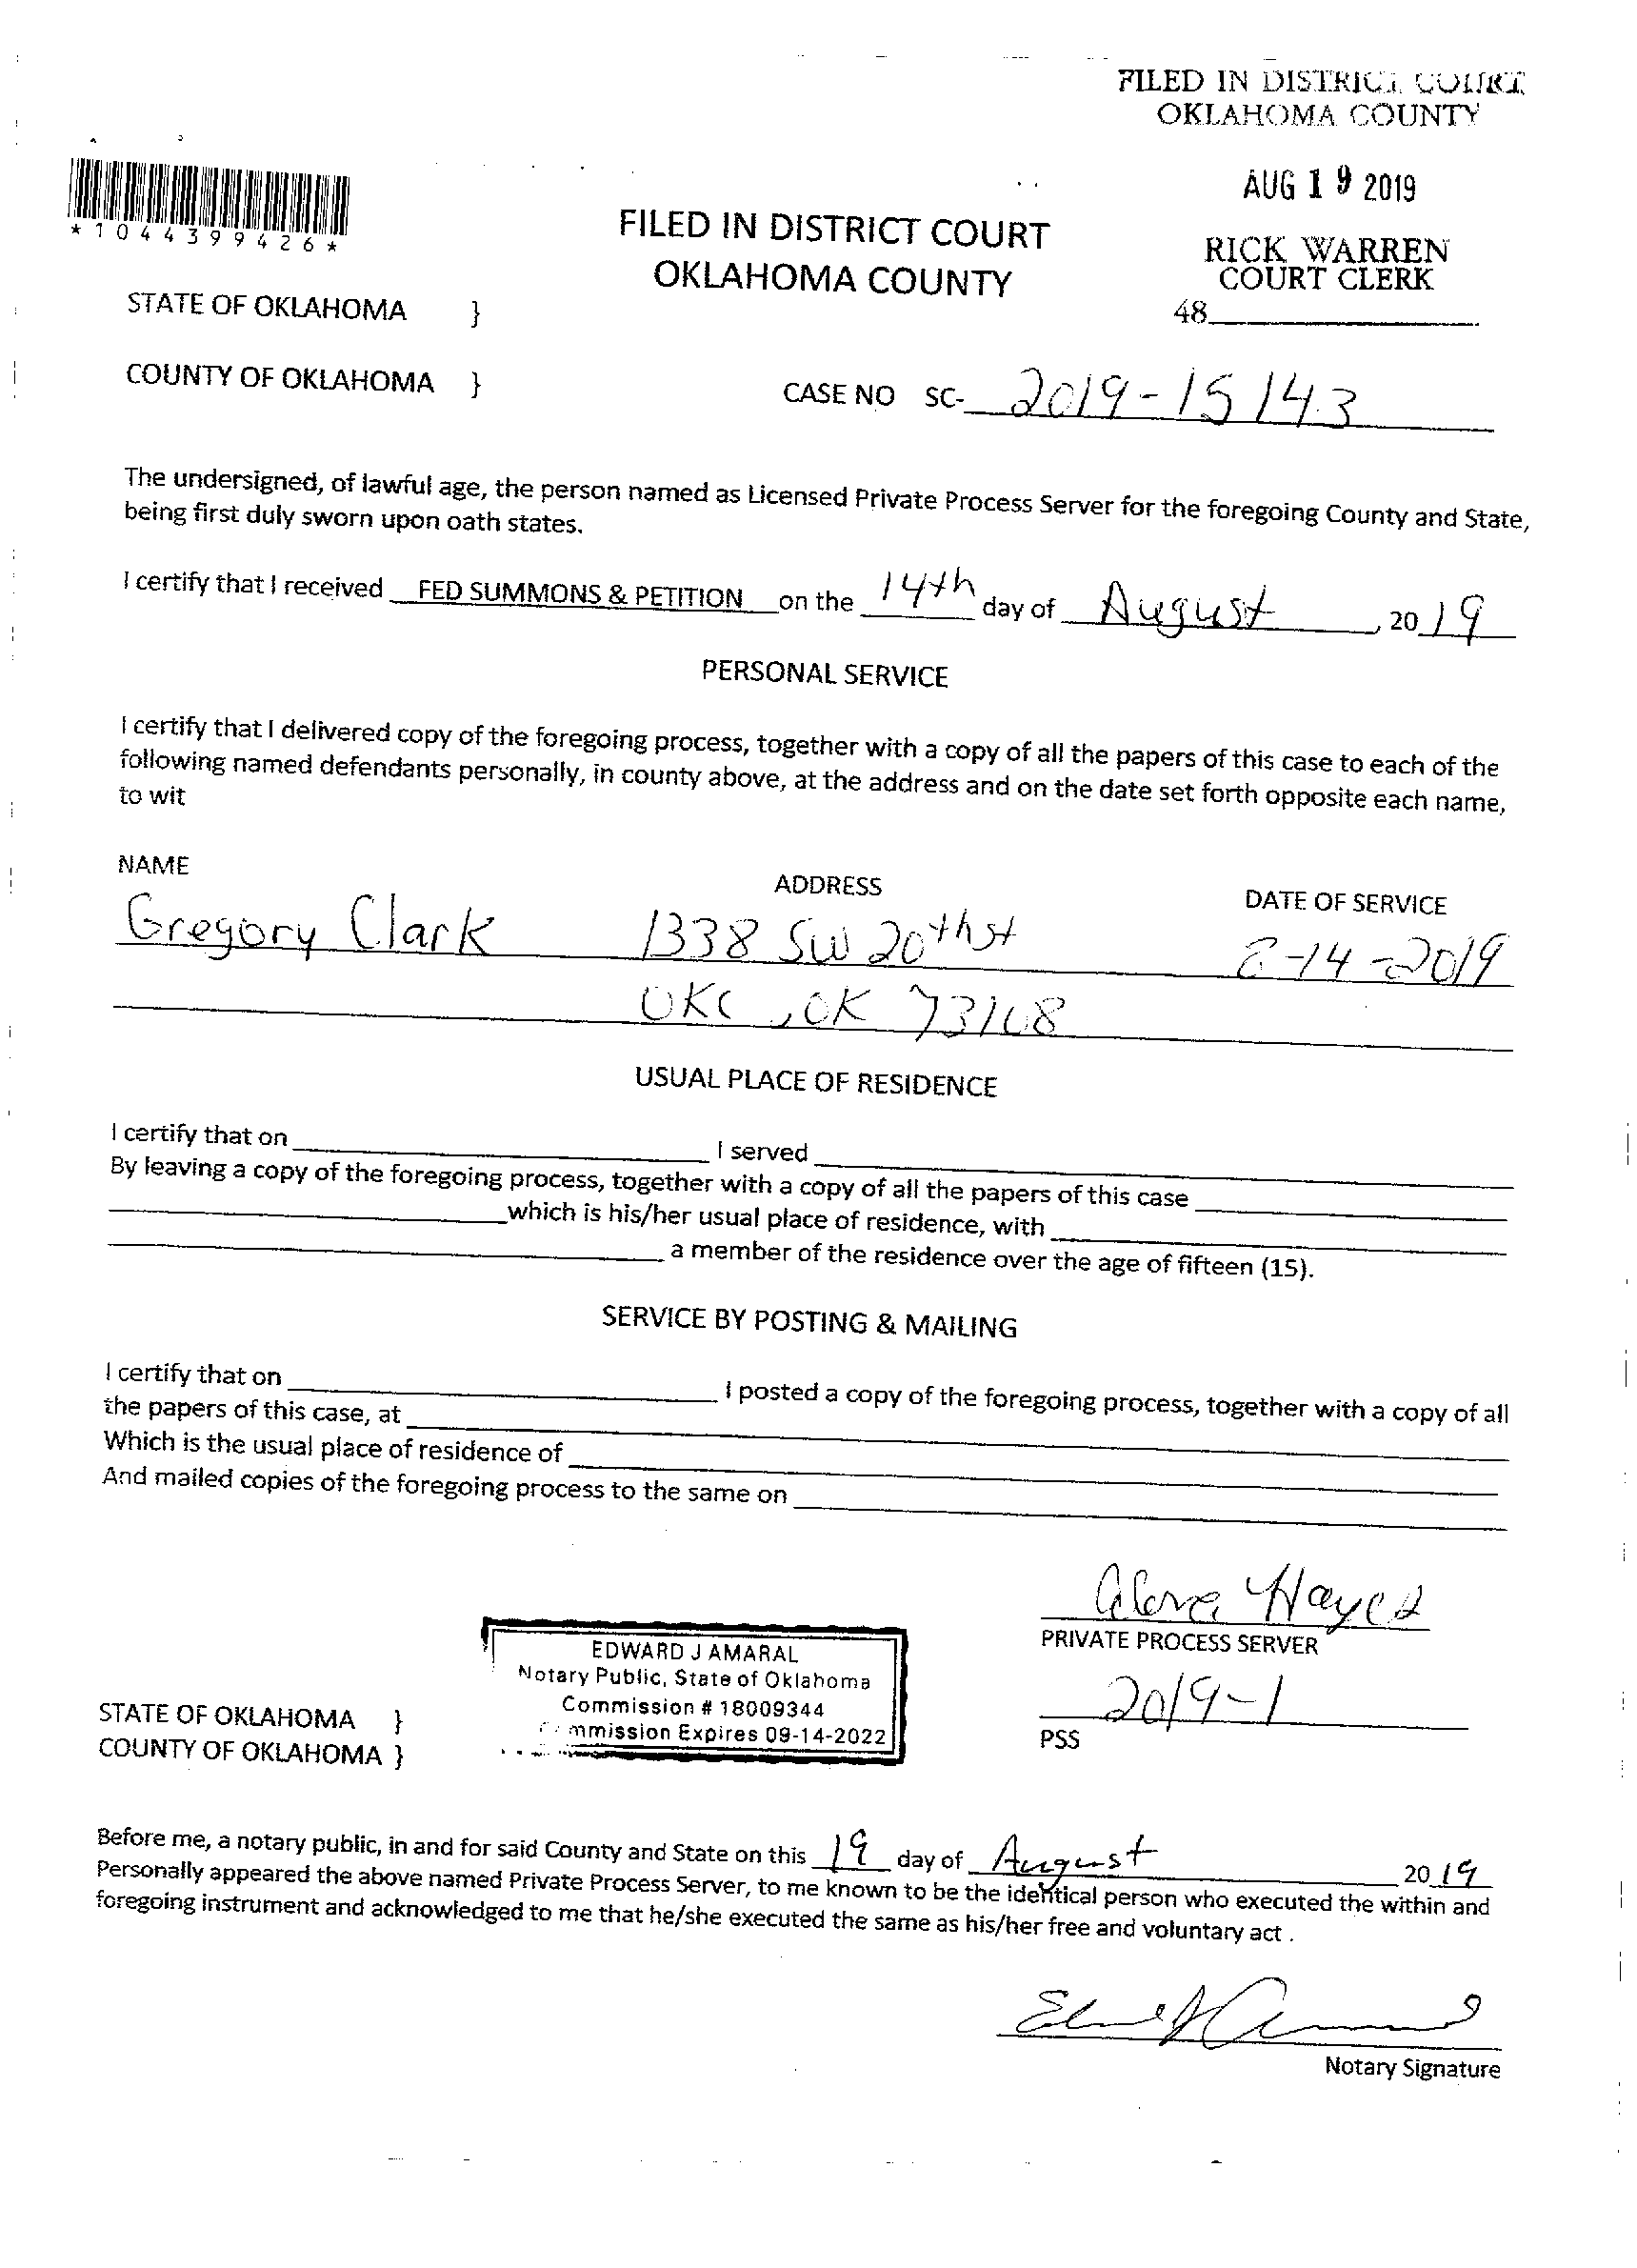 FILED IN DISTRICT COURT
OKLAHOMA COUNTY
AUG 19 2019
RICK WARREN
COURT CLERK
48
*1044399426*
FILED IN DISTRICT COURT
OKLAHOMA COUNTY
STATE OF OKLAHOMA }
COUNTY OF OKLAHOMA }
CASE NO SC- 2019-15143
The undersigned, of lawful age, the person named as Licensed Private Process Server for the foregoing County and State,
being first duly sworn upon oath states.
I certify that I received FED SUMMONS & PETITION on the 14th day of August, 2019
PERSONAL SERVICE
I certify that I delivered copy of the foregoing process, together with a copy of all the papers of this case to each of the
following named defendants personally, in county above, at the address and on the date set forth opposite each name,
to wit
NAME ADDRESS DATE OF SERVICE
Gregory Clark 1338 SW 20th st 8-14-2019
OKC, OK 73108
USUAL PLACE OF RESIDENCE
I certify that on I served
By leaving a copy of the foregoing process, together with a copy of all the papers of this case
which is his/her usual place of residence, with
a member of the residence over the age of fifteen (15).
SERVICE BY POSTING & MAILING
I certify that on I posted a copy of the foregoing process, together with a copy of all
the papers of this case, at
Which is the usual place of residence of
And mailed copies of the foregoing process to the same on
Hayes
PRIVATE PROCESS SERVER
2019-1
PSS
EDWARD J AMARAL
Notary Public, State of Oklahoma
Commission # 18009344
Commission Expires 09-14-2022
STATE OF OKLAHOMA }
COUNTY OF OKLAHOMA }
Before me, a notary public, in and for said County and State on this 19 day of August 2019
Personally appeared the above named Private Process Server, to me known to be the identical person who executed the within and
foregoing instrument and acknowledged to me that he/she executed the same as his/her free and voluntary act .
Notary Signature